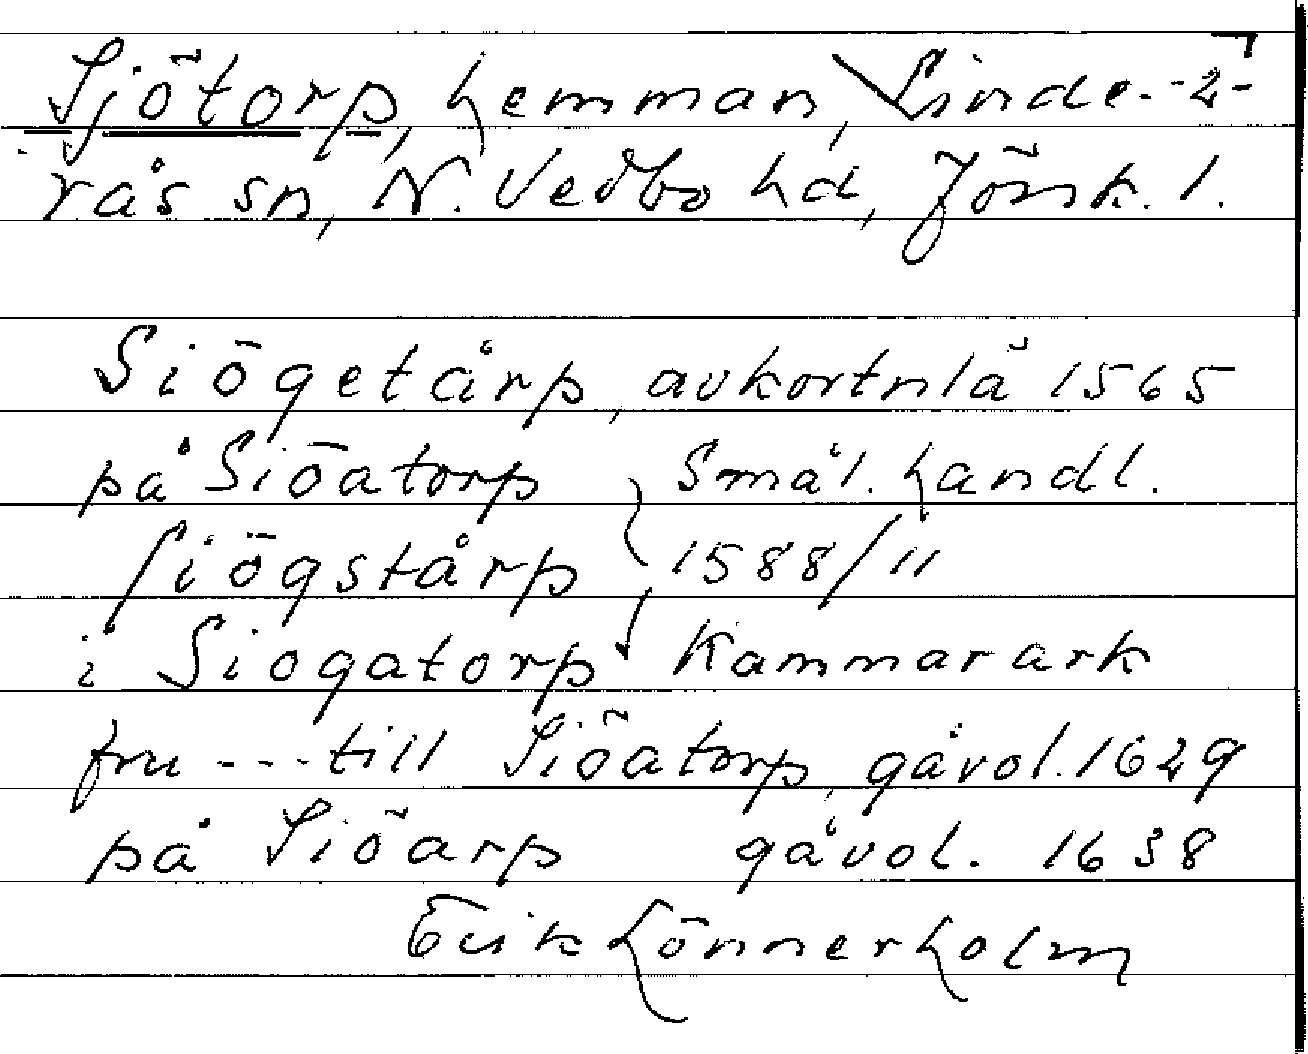 Sjötorp, hemman, Linde- -2-
rås sn, N. Vedbo hd, Jönk. l.
Siögetårp, avkortnlä 1565
på Siöatorp } Smål. handl.
Siögstårp 1588/11
i Siogatorp Kammarark
fru --- till Siöatorp, gåvol. 1629
på Siöarp gåvol. 1638
Erik Lönnerholm